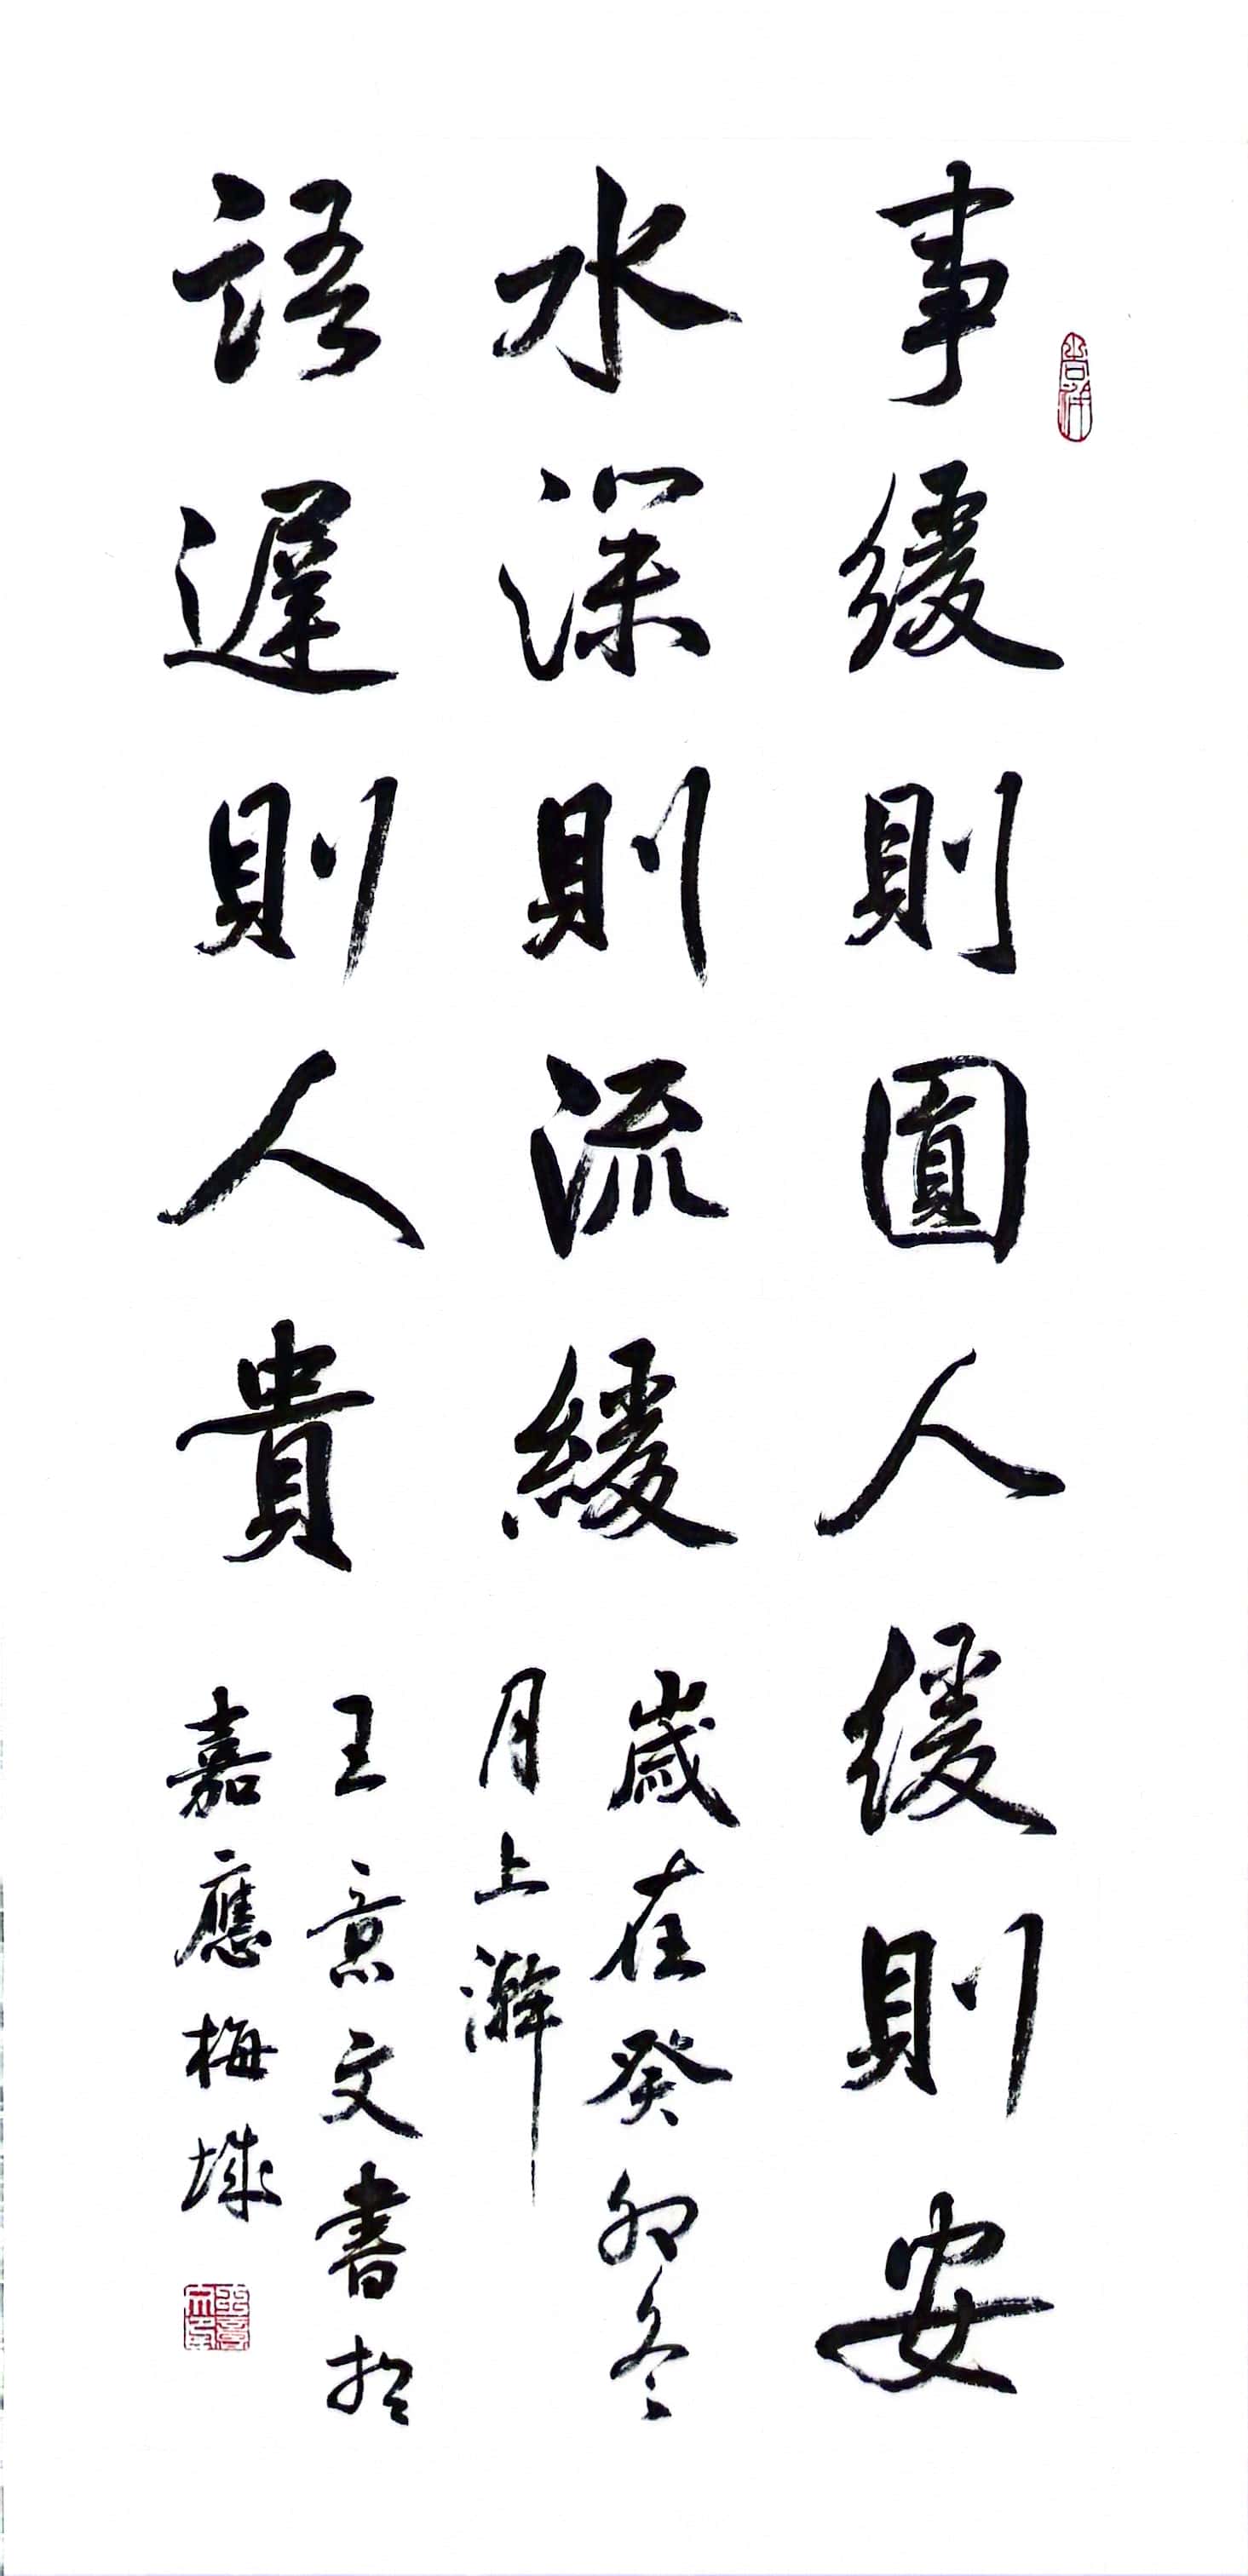 事緩則圓人緩則安
水深則流緩
語遲則人貴
歲在癸卯冬
月上澣
王意文書於
嘉應梅城
吉祥